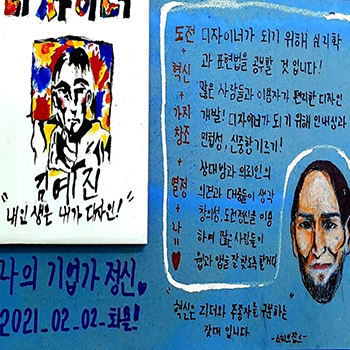 디자이너
김예진
"내 인생은 내가 디자인!"
나의 기업가 정신
2021.02.02.화요일!
도전
+
혁신
+
가치
창조
+
열정
+
나
=
디자이너가 되기 위해 심리학
과 표현법을 공부할 것 입니다!
많은 사람들과 이용자가 편리한 디자인
개발! 디자이너가 되기 위해 인내심과
인성, 신중함기르기!
상대방과 의뢰인의
의견과 대중들의 생각
창의성, 도전정신을 이용
하여 많은 사람들이
웹과 앱을 잘 쓰도록 할거다
혁신은 리더와 추종자를 구분하는
잣대 입니다
-스티브잡스-